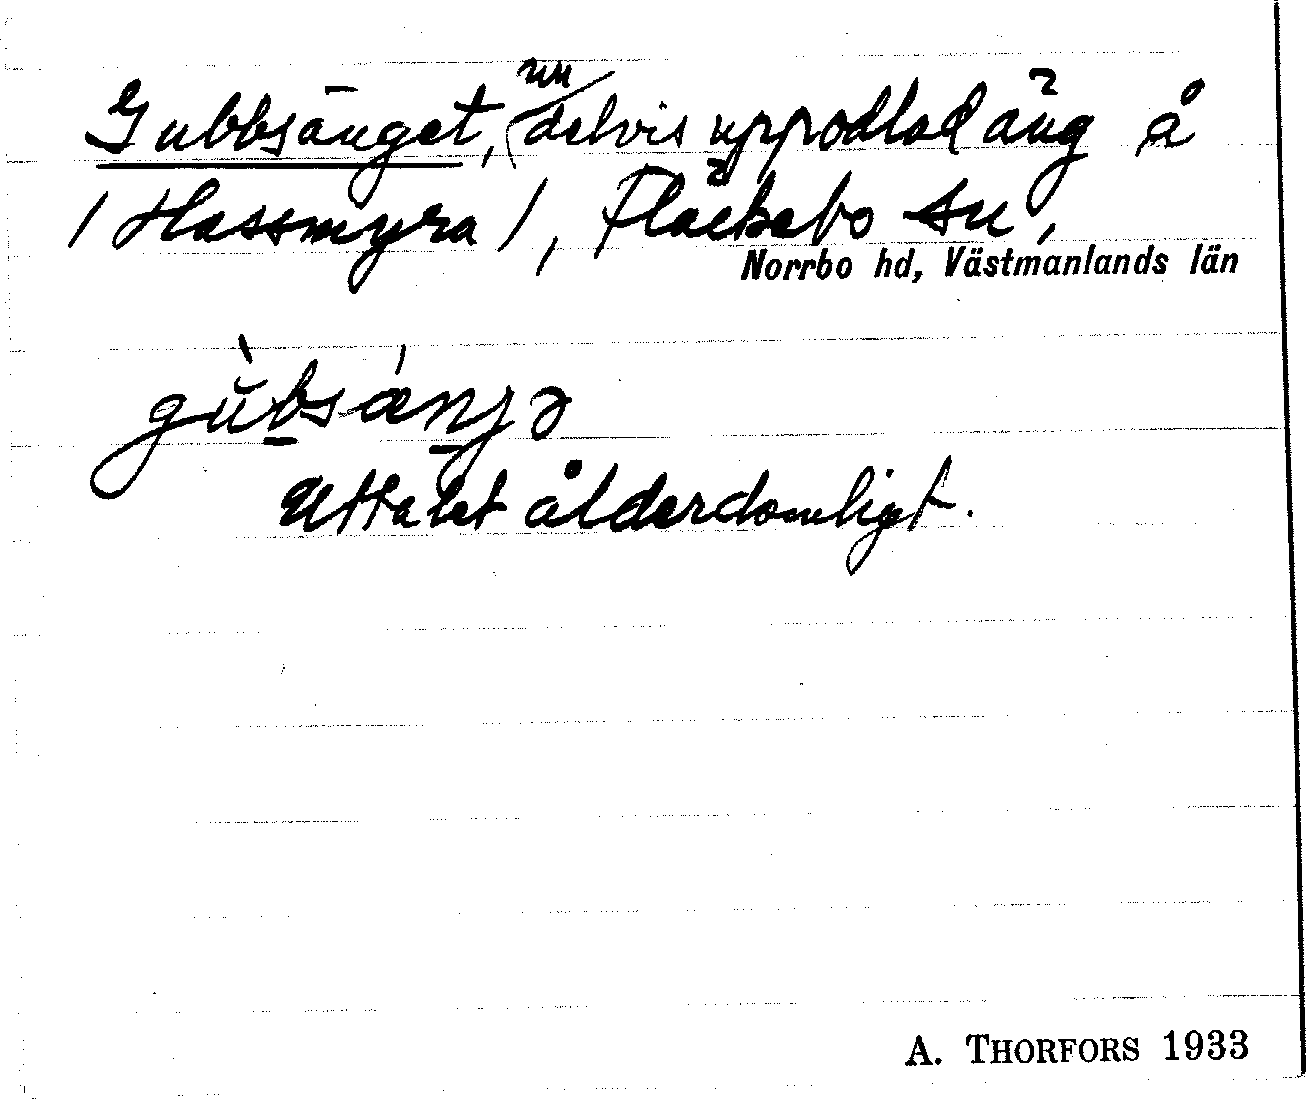 Gubbsänget, nu delvis uppodlad äng å
/Hassmyra/, Fläckebo sn,
Norrbo hd, Västmanlands län
gù̱bsǽṉjə
Uttalet ålderdomligt.
A. THORFORS 1933